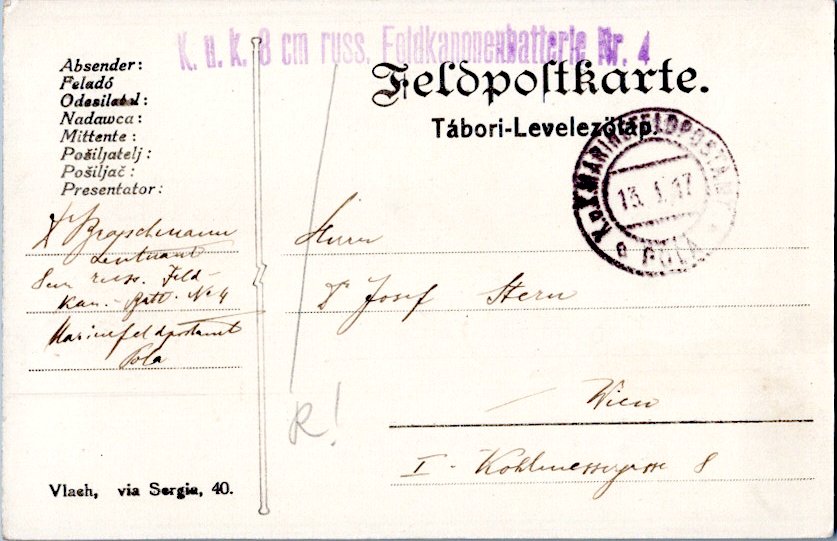 K. u. k. 8 cm russ. Feldkanonenbatterie Nr. 4
Feldpostkarte.
Tábori-Levelezőlap.
K.u.K. MARINEFELDPOSTAMT
13. I. 17
POLA
Absender:
Feladó
Odesilatel:
Nadawca:
Mittente:
Pošiljatelj:
Pošiljač:
Presentator:
Leutnant
8cm russ. Feld-
Kan.- Batt. No 4
Marinefeldpostamt
Pola
Herrn
Dr Josef Stern
Wien
I. Kohlmessergasse 8
R!
Vlach, via Sergia, 40.